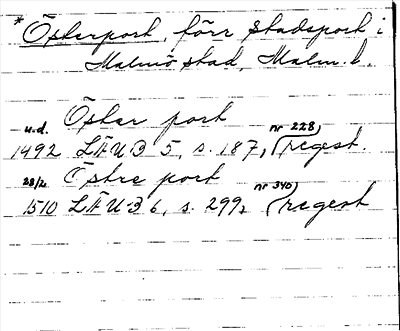 * Österport, förr stadsport i
Malmö stad, Malm. l.
Östar port
u.d. nr 228)
1492 LÄUB 5, s. 187, (regest.
Östre port
28/2 nr 340)
1510 LÄUB 6, s. 299, (regest